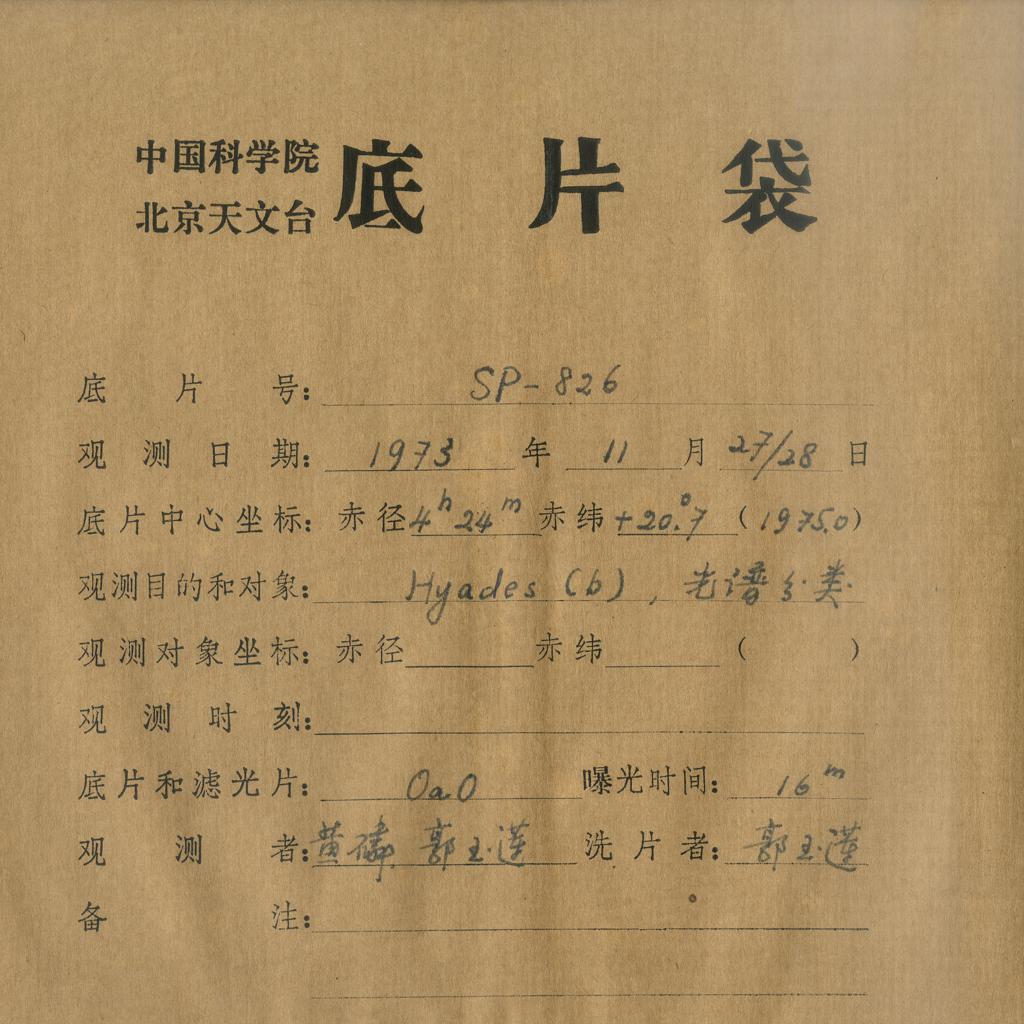 中国科学院
北京天文台
底片袋
底片号: SP-826
观测日期: 1973 年 11 月 27/28 日
底片中心坐标: 赤径 4ʰ24ᵐ 赤纬 +20°.7 (1975.0)
观测目的和对象: Hyades (b), 光谱分类
观测对象坐标: 赤径 赤纬 ( )
观测时刻:
底片和滤光片: OaO 曝光时间: 16ᵐ
观测者: 黄磷 郭玉莲 洗片者: 郭玉莲
备注: